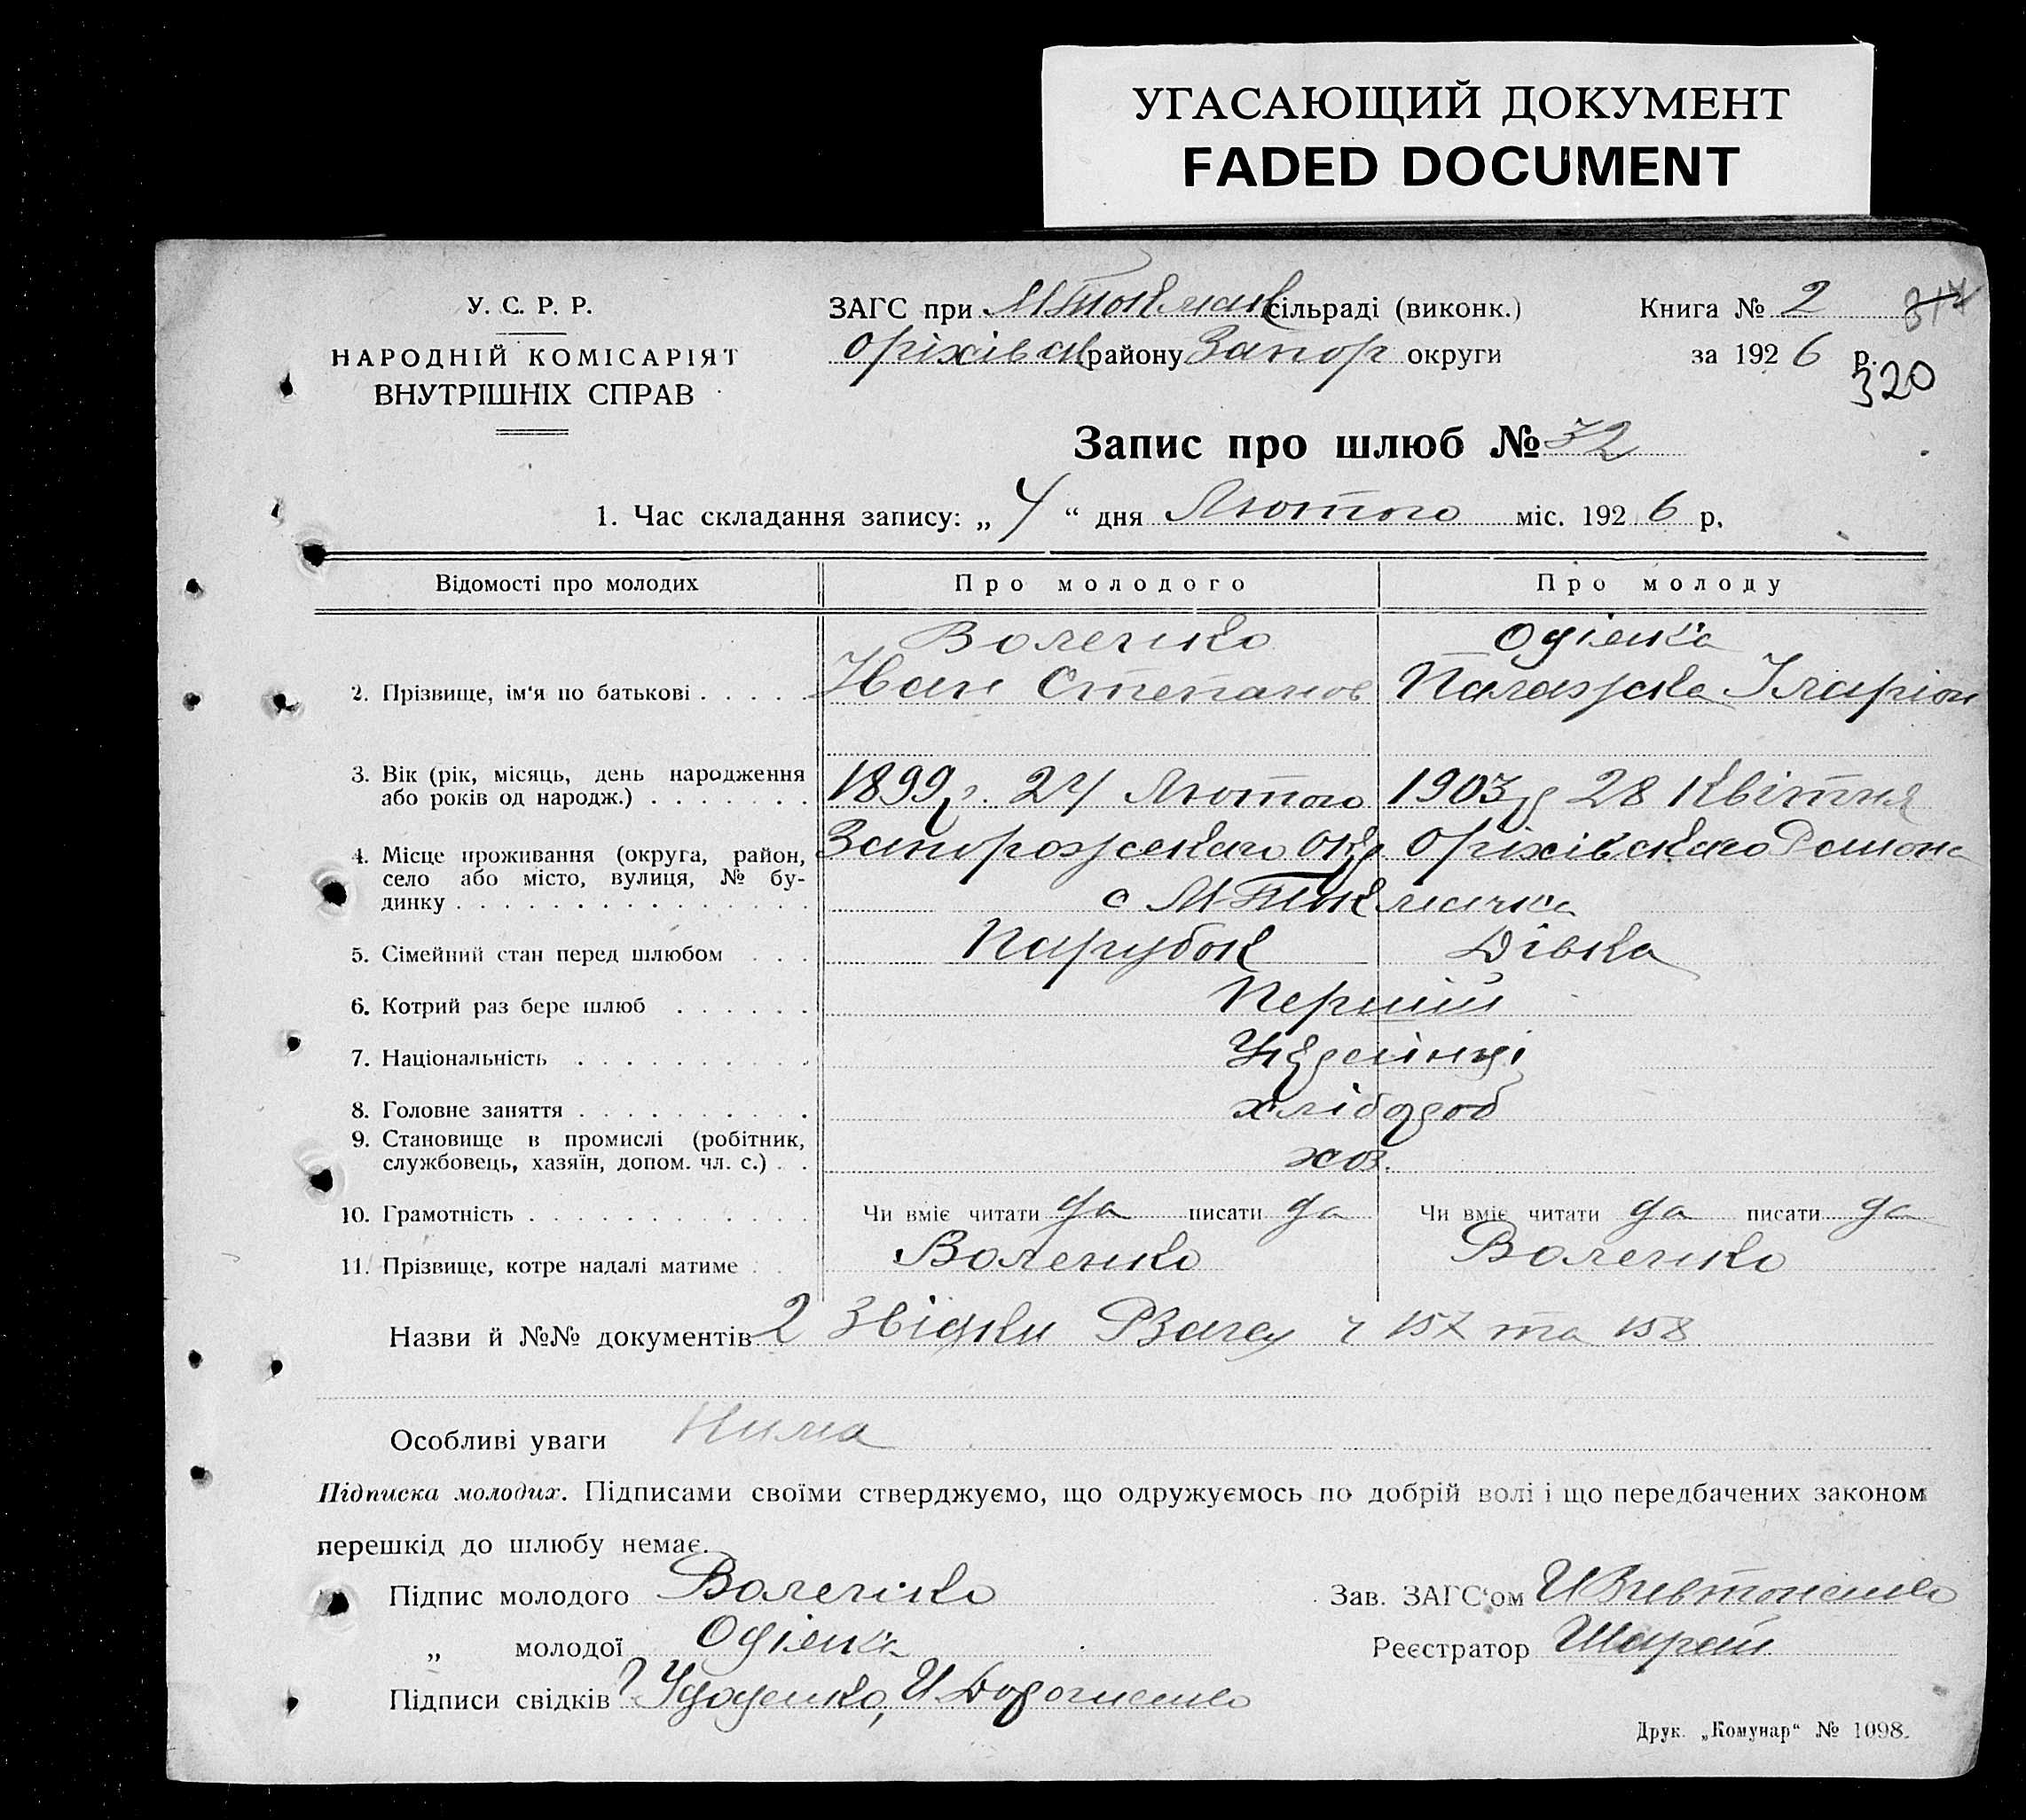 УГАСАЮЩИЙ ДОКУМЕНТ
FADED DOCUMENT
У. С. Р. Р.
НАРОДНІЙ КОМІСАРІЯТ
ВНУТРІШНІХ СПРАВ
ЗАГС при МТокмак сільраді (виконк.)
Оріхівськ району Запор округи
Книга № 2
за 1926 р.
317
320
Запис про шлюб № 32
1. Час складання запису: „ 4 “ дня Лютого міс. 1926 р.
Відомості про молодих Про молодого Про молоду
Воленко
2. Прізвище, ім'я по батькові . . . . . Иван Степанов Палажка Іларіон
3. Вік (рік, місяць, день народження
або років од народж.) . . . . . . . 1899 г. 24 Лютого 1903 р 28 Квітня
4. Місце проживання (округа, район, Запорожського Окр Оріхівського Району
село або місто, вулиця, № бу-
динку . . . . . . . . . . . . . . . с МТокмачка
5. Сімейний стан перед шлюбом . . . Парубок Дівка
6. Котрий раз бере шлюб . . . . . . Перший
7. Національність . . . . . . . . . . Українці
8. Головне заняття . . . . . . . . . . хлібороб
9. Становище в промислі (робітник,
службовець, хазяїн, допом. чл. с.) . . хоз.
10. Грамотність . . . . . . . . . . . . Чи вміє читати да писати да Чи вміє читати да писати да
11. Прізвище, котре надалі матиме . . . Воленко Воленко
Назви й №№ документів 2 Звідки ч 157 та 158
Особливі уваги Нима
Підписка молодих. Підписами своїми стверджуємо, що одружуємось по добрій волі і що передбачених законом
перешкід до шлюбу немає.
Підпис молодого Воленко
Зав. ЗАГС'ом
„ молодої
Реєстратор
Підписи свідків
Друк. „Комунар“ № 1098.